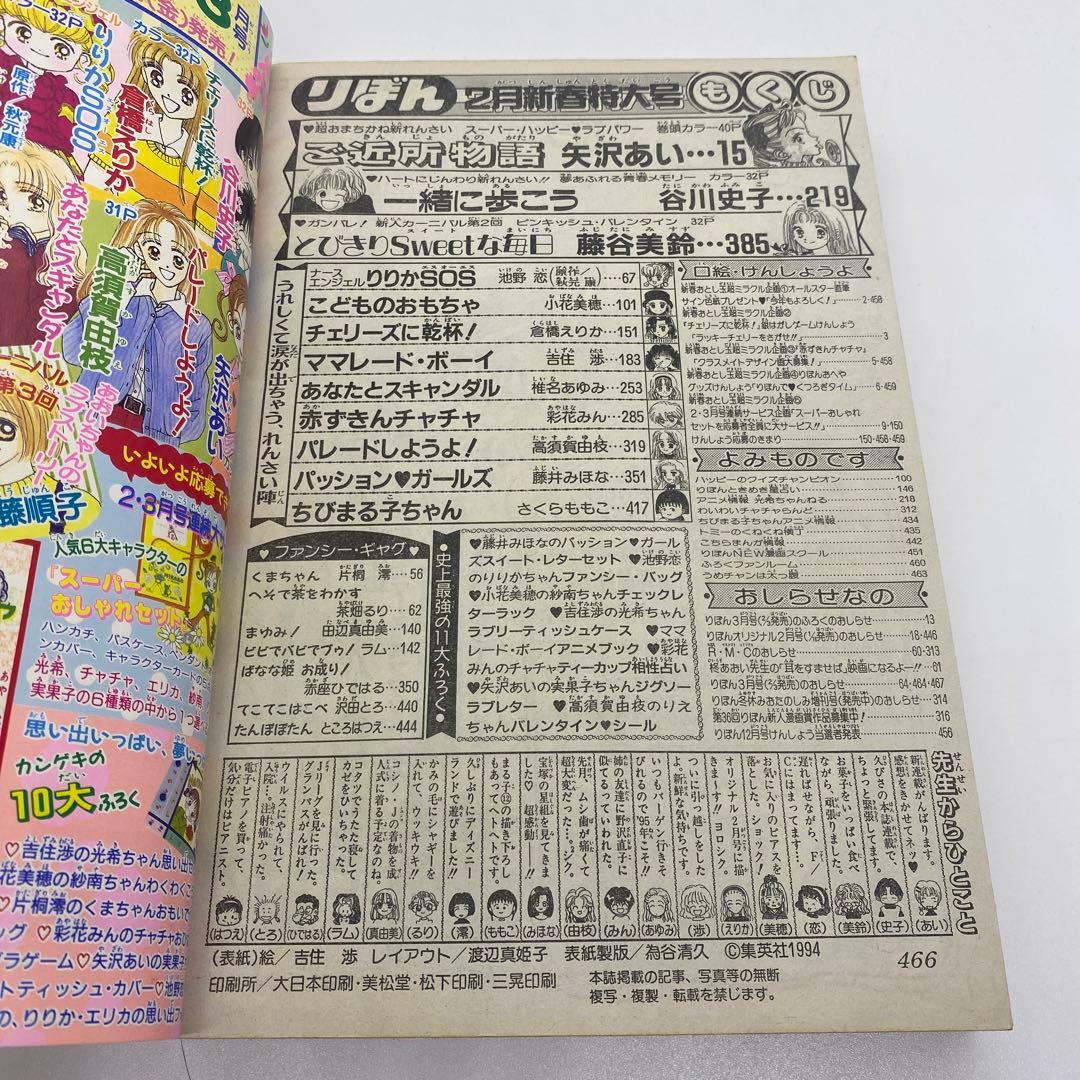 りぼん 2月新春特大号 もくじ
♥超おまちかね新れんさい スーパー・ハッピー♥ラブパワー 巻頭カラー40P
ご近所物語 矢沢あい…15
♥ハートにじんわり新れんさい!! 夢あふれる青春メモリー カラー32P
一緒に歩こう 谷川史子…219
♥ガンバレ! 新人カーニバル第2回 ピンキッシュ・バレンタイン 32P
とびきりSweetな毎日 藤谷美鈴…385
うれしくて涙が出ちゃう、れんさい陣
ナースエンジェルりりかSOS 池野 恋(原作/秋元 康)…67
こどものおもちゃ 小花美穂…101
チェリーズに乾杯! 倉橋えりか…151
ママレード・ボーイ 吉住 渉…183
あなたとスキャンダル 椎名あゆみ…253
赤ずきんチャチャ 彩花みん…285
パレードしようよ! 高須賀由枝…319
パッション♥ガールズ 藤井みほな…351
ちびまる子ちゃん さくらももこ…417
♥ファンシー・ギャグ♥
くまちゃん 片桐 澪…56
へそで茶をわかす
茶畑るり…62
まゆみ! 田辺真由美…140
ビビでバビでブゥ! ラム…142
ばなな姫 お成り!
赤座ひではる…350
てこてこはこべ 沢田とろ…440
たんぽぽたん ところはつえ…444
史上最強の11大ふろく
♥藤井みほなのパッション♥ガール
ズスイート・レターセット ♥池野恋
のりりかちゃんファンシー・バッグ
♥小花美穂の紗南ちゃんチェックレ
ターラック ♥吉住渉の光希ちゃん
ラブリーティッシュケース ♥ママ
レード・ボーイアニメブック ♥彩花
みんのチャチャティーカップ相性占い
♥矢沢あいの実果子ちゃんジグソー
ラブレター ♥高須賀由枝のりえ
ちゃんバレンタイン♥シール
口絵・けんしょうよ
新春おとし玉超ミラクル企画①オールスター直筆
サイン色紙プレゼント♥「今年もよろしく!」 2・458
新春おとし玉超ミラクル企画②
「チェリーズに乾杯!」銀はがしゲームけんしょう
「ラッキーチェリーをさがせ!!」 3
新春おとし玉超ミラクル企画③「赤ずきんチャチャ」
「クラスメイトデザイン画大募集!」 5・458
新春おとし玉超ミラクル企画④りぼんおへや
グッズけんしょう「りぼんで♥くつろぎタイム」 6・459
新春おとし玉超ミラクル企画⑤
2・3月号連続サービス企画「スーパーおしゃれ
セットを応募者全員に大サービス!!」 9・150
けんしょう応募のきまり 150・458・459
よみものです
ハッピーのクイズチャンピオン 100
りぼんときめき星占い 146
アニメ情報 光希ちゃんねる 218
わいわいチャチャらんど 312
ちびまる子ちゃんアニメ情報 434
トミーのくねくね横丁 435
こちらまんが情報 442
りぼんNEW漫画スクール 451
ふろくファンルーム 460
うめチャンは犬っ顔 463
おしらせなの
りぼん3月号(2/3発売)のふろくのおしらせ 13
りぼんオリジナル2月号(1/6発売)のおしらせ 18・446
R・M・Cのおしらせ 60・313
柊あおい先生の「耳をすませば」映画になるよー!! 61
りぼん3月号(2/3発売)のおしらせ 64・464・467
りぼん冬休みおたのしみ増刊号(発売中)のおしらせ 314
第36回りぼん新人漫画賞作品募集中! 316
りぼん12月号けんしょう当選者発表 456
先生からひとこと
新連載がんばります。感想をきかせてネ♥ (あい)
久びさの本誌連載で、ちょっと緊張してます。 (史子)
お菓子をいっぱい食べながら、頑張りました。 (美鈴)
遅ればせながら、F/Cにはまってます…。 (恋)
お気に入りのピアスを落とした。ショック! (美穂)
オリジナル2月号に描きます! ヨロシク。 (えりか)
ついに引っ越しをしたよ。新鮮な気持ちです。 (渉)
いつもバーゲン行きそびれるので'95年こそっ! (あゆみ)
姉の友達に野沢直子に似てるっていわれた。 (みん)
先月、ムシ歯が痛くて超大変だった…。シク。 (由枝)
宝塚の星組を見てきました♡ 超感動――! (みほな)
まる子⑬の描き下ろしもあってヘトヘトです。 (ももこ)
久しぶりにディズニーランドで遊びました! (澪)
かみの毛にシャギーを入れて、ウッキウキ!! (るり)
コシノ・Jの着物を成人式に着る予定なのね。 (真由美)
コタツでうたた寝してカゼをひいちゃった。 (ラム)
Jリーグを見に行った。グランパスがんばれ! (ひではる)
ウイルスにやられて入院…。注射痛かった。 (とろ)
電子ピアノを買って、気分だけはピアニスト。 (はつえ)
(表紙)絵/吉住 渉 レイアウト/渡辺真姫子 表紙製版/為谷清久 ©集英社1994
印刷所/大日本印刷・美松堂・松下印刷・三晃印刷
本誌掲載の記事、写真等の無断
複写・複製・転載を禁じます。
466
月号
(金)発売!
カラー32P
りりかSOS
原作/秋元康
カラー32P
倉橋えりか
チェリーズに乾杯!
谷川史子
あなたとスキャンダル
31P
高須賀由枝
パレードしようよ!
矢沢あい
第3回
あおいちゃんの
ラブストーリー
藤順子
いよいよ応募で
2・3月号連続大
人気6大キャラクターの
『スーパー
おしゃれセット』
ハンカチ、パスケース、ペンダン
ンカバー、キャラクターカードの
光希、チャチャ、エリカ、紗南、
実果子の6種類の中から1つ選べ
思い出いっぱい、夢い
カンゲキの
10大ふろく
♡吉住渉の光希ちゃん思い出
花美穂の紗南ちゃんわくわく
♡片桐澪のくまちゃんおもいで
ッグ ♡彩花みんのチャチャおひ
グラゲーム ♡矢沢あいの実果子
ットティッシュ・カバー♡池野
の、りりか・エリカの思い出フ